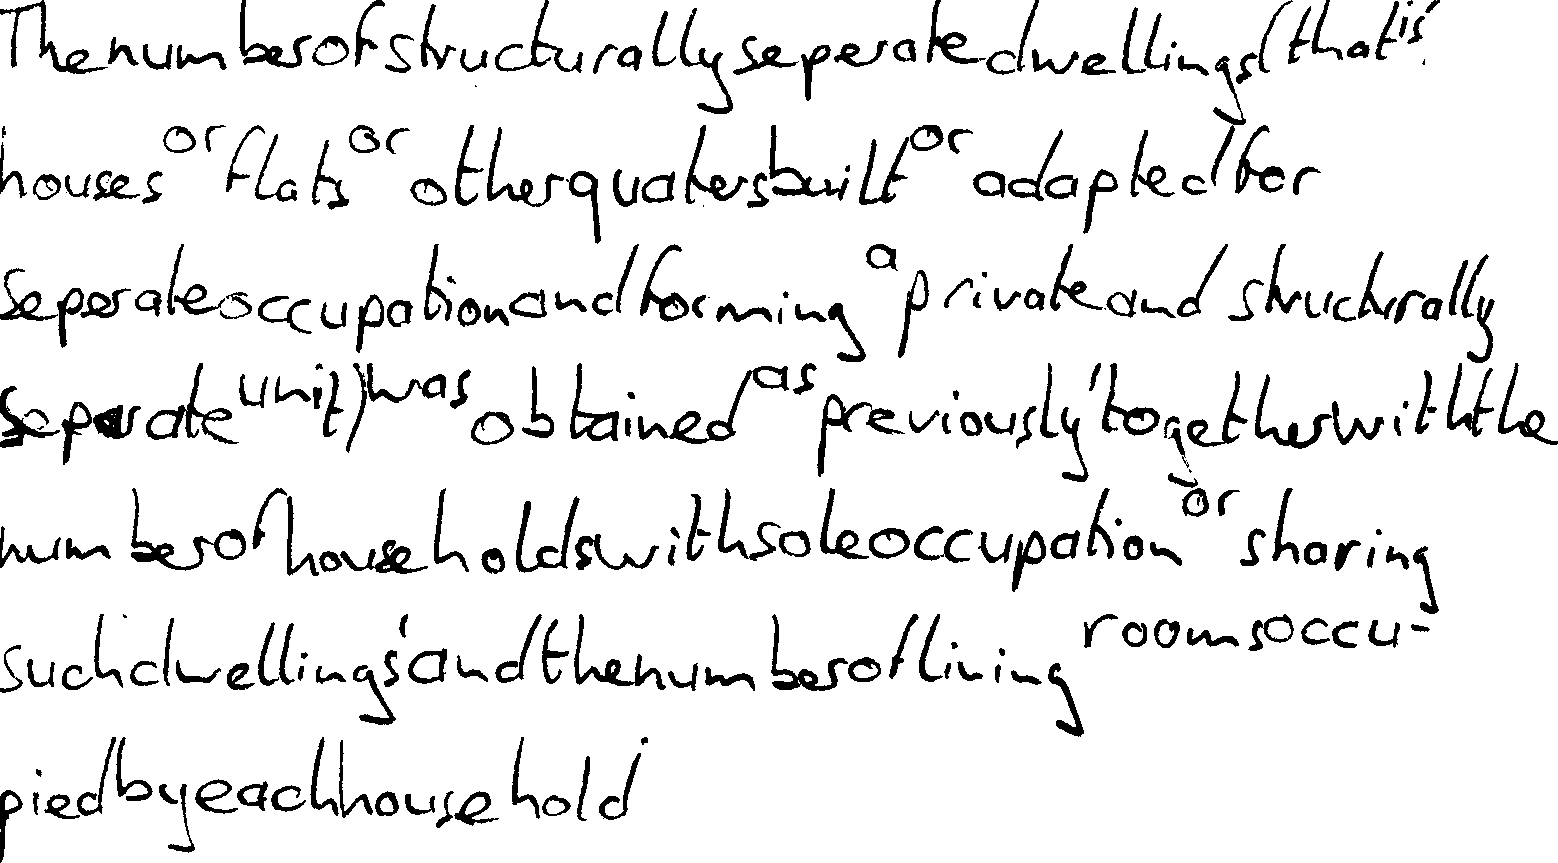 The number of structurally seperate dwellings (that is,
houses or flats or other quaters built or adapted for
seperate occupation and forming a private and structurally
seperate unit) was obtained as previously, together with the
number of households with sole occupation or sharing
such dwellings, and the number of living rooms occu-
pied by each household